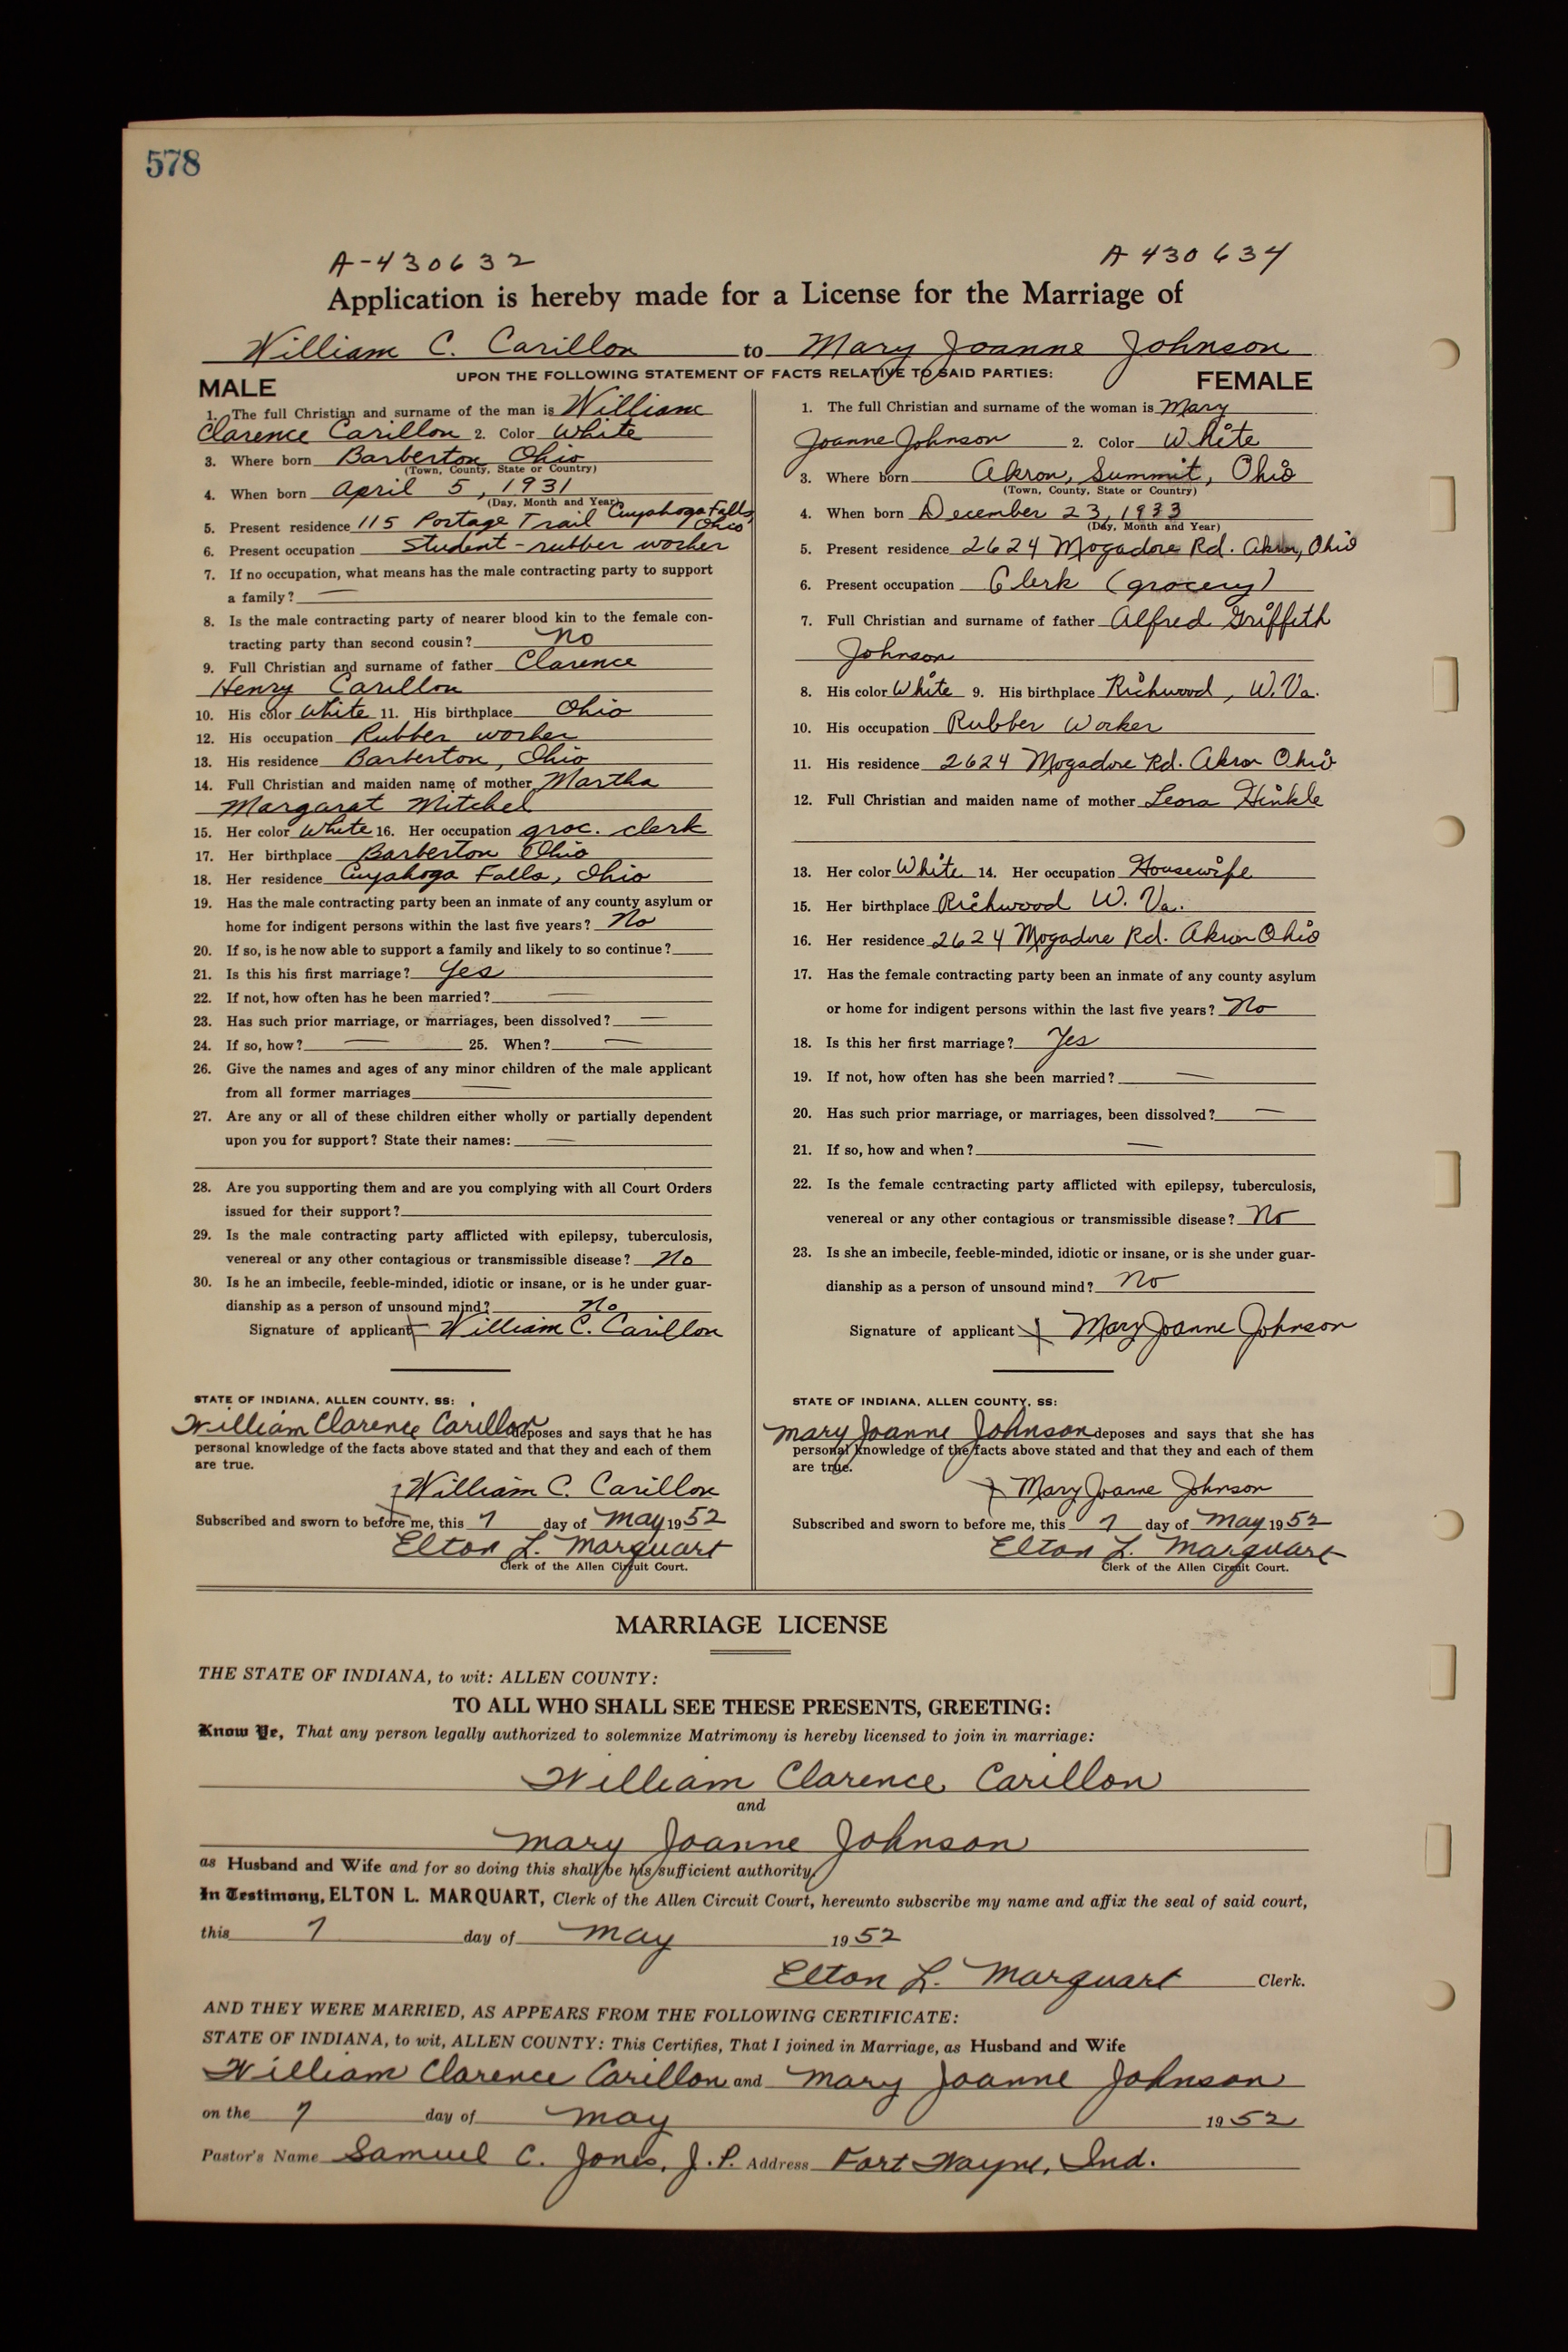 578
A-430632 A 430634
Application is hereby made for a License for the Marriage of
William C. Carillon to Mary Joanne Johnson
UPON THE FOLLOWING STATEMENT OF FACTS RELATIVE TO SAID PARTIES:
MALE
1. The full Christian and surname of the man is William
Clarence Carillon 2. Color White
3. Where born Barberton Ohio
(Town, County, State or Country)
4. When born April 5, 1931
(Day, Month and Year)
5. Present residence 115 Portage Trail Cuyahoga Falls
Ohio
6. Present occupation Student - rubber worker
7. If no occupation, what means has the male contracting party to support
a family? —
8. Is the male contracting party of nearer blood kin to the female con-
tracting party than second cousin? No
9. Full Christian and surname of father Clarence
Henry Carillon
10. His color White 11. His birthplace Ohio
12. His occupation Rubber worker
13. His residence Barberton, Ohio
14. Full Christian and maiden name of mother Martha
Margarat Mitchel
15. Her color White 16. Her occupation groc. clerk
17. Her birthplace Barberton Ohio
18. Her residence Cuyahoga Falls, Ohio
19. Has the male contracting party been an inmate of any county asylum or
home for indigent persons within the last five years? No
20. If so, is he now able to support a family and likely to so continue?
21. Is this his first marriage? Yes
22. If not, how often has he been married? —
23. Has such prior marriage, or marriages, been dissolved? —
24. If so, how? — 25. When? —
26. Give the names and ages of any minor children of the male applicant
from all former marriages —
27. Are any or all of these children either wholly or partially dependent
upon you for support? State their names: —
28. Are you supporting them and are you complying with all Court Orders
issued for their support?
29. Is the male contracting party afflicted with epilepsy, tuberculosis,
venereal or any other contagious or transmissible disease? No
30. Is he an imbecile, feeble-minded, idiotic or insane, or is he under guar-
dianship as a person of unsound mind? No
Signature of applicant William C. Carillon
STATE OF INDIANA, ALLEN COUNTY, SS:
William Clarence Carillon deposes and says that he has
personal knowledge of the facts above stated and that they and each of them
are true.
William C. Carillon
Subscribed and sworn to before me, this 7 day of May 1952
Elton L. Marquart
Clerk of the Allen Circuit Court.
FEMALE
1. The full Christian and surname of the woman is Mary
Joanne Johnson 2. Color White
3. Where born Akron, Summit, Ohio
(Town, County, State or Country)
4. When born December 23, 1933
(Day, Month and Year)
5. Present residence 2624 Mogadore Rd. Akron, Ohio
6. Present occupation Clerk (grocery)
7. Full Christian and surname of father Alfred Griffith
Johnson
8. His color White 9. His birthplace Richwood, W. Va.
10. His occupation Rubber Worker
11. His residence 2624 Mogadore Rd. Akron Ohio
12. Full Christian and maiden name of mother Leora Hinkle
13. Her color White 14. Her occupation Housewife
15. Her birthplace Richwood W. Va.
16. Her residence 2624 Mogadore Rd. Akron Ohio
17. Has the female contracting party been an inmate of any county asylum
or home for indigent persons within the last five years? No
18. Is this her first marriage? Yes
19. If not, how often has she been married? —
20. Has such prior marriage, or marriages, been dissolved? —
21. If so, how and when? —
22. Is the female contracting party afflicted with epilepsy, tuberculosis,
venereal or any other contagious or transmissible disease? No
23. Is she an imbecile, feeble-minded, idiotic or insane, or is she under guar-
dianship as a person of unsound mind? No
Signature of applicant Mary Joanne Johnson
STATE OF INDIANA, ALLEN COUNTY, SS:
Mary Joanne Johnson deposes and says that she has
personal knowledge of the facts above stated and that they and each of them
are true.
Mary Joanne Johnson
Subscribed and sworn to before me, this 7 day of May 1952
Elton L. Marquart
Clerk of the Allen Circuit Court.
MARRIAGE LICENSE
THE STATE OF INDIANA, to wit: ALLEN COUNTY:
TO ALL WHO SHALL SEE THESE PRESENTS, GREETING:
Know Ye, That any person legally authorized to solemnize Matrimony is hereby licensed to join in marriage:
William Clarence Carillon
and
Mary Joanne Johnson
as Husband and Wife and for so doing this shall be his sufficient authority
In Testimony, ELTON L. MARQUART, Clerk of the Allen Circuit Court, hereunto subscribe my name and affix the seal of said court,
this 7 day of May 1952
Elton L. Marquart Clerk.
AND THEY WERE MARRIED, AS APPEARS FROM THE FOLLOWING CERTIFICATE:
STATE OF INDIANA, to wit, ALLEN COUNTY: This Certifies, That I joined in Marriage, as Husband and Wife
William Clarence Carillon and Mary Joanne Johnson
on the 7 day of May 1952
Pastor's Name Samuel C. Jones, J.P. Address Fort Wayne, Ind.